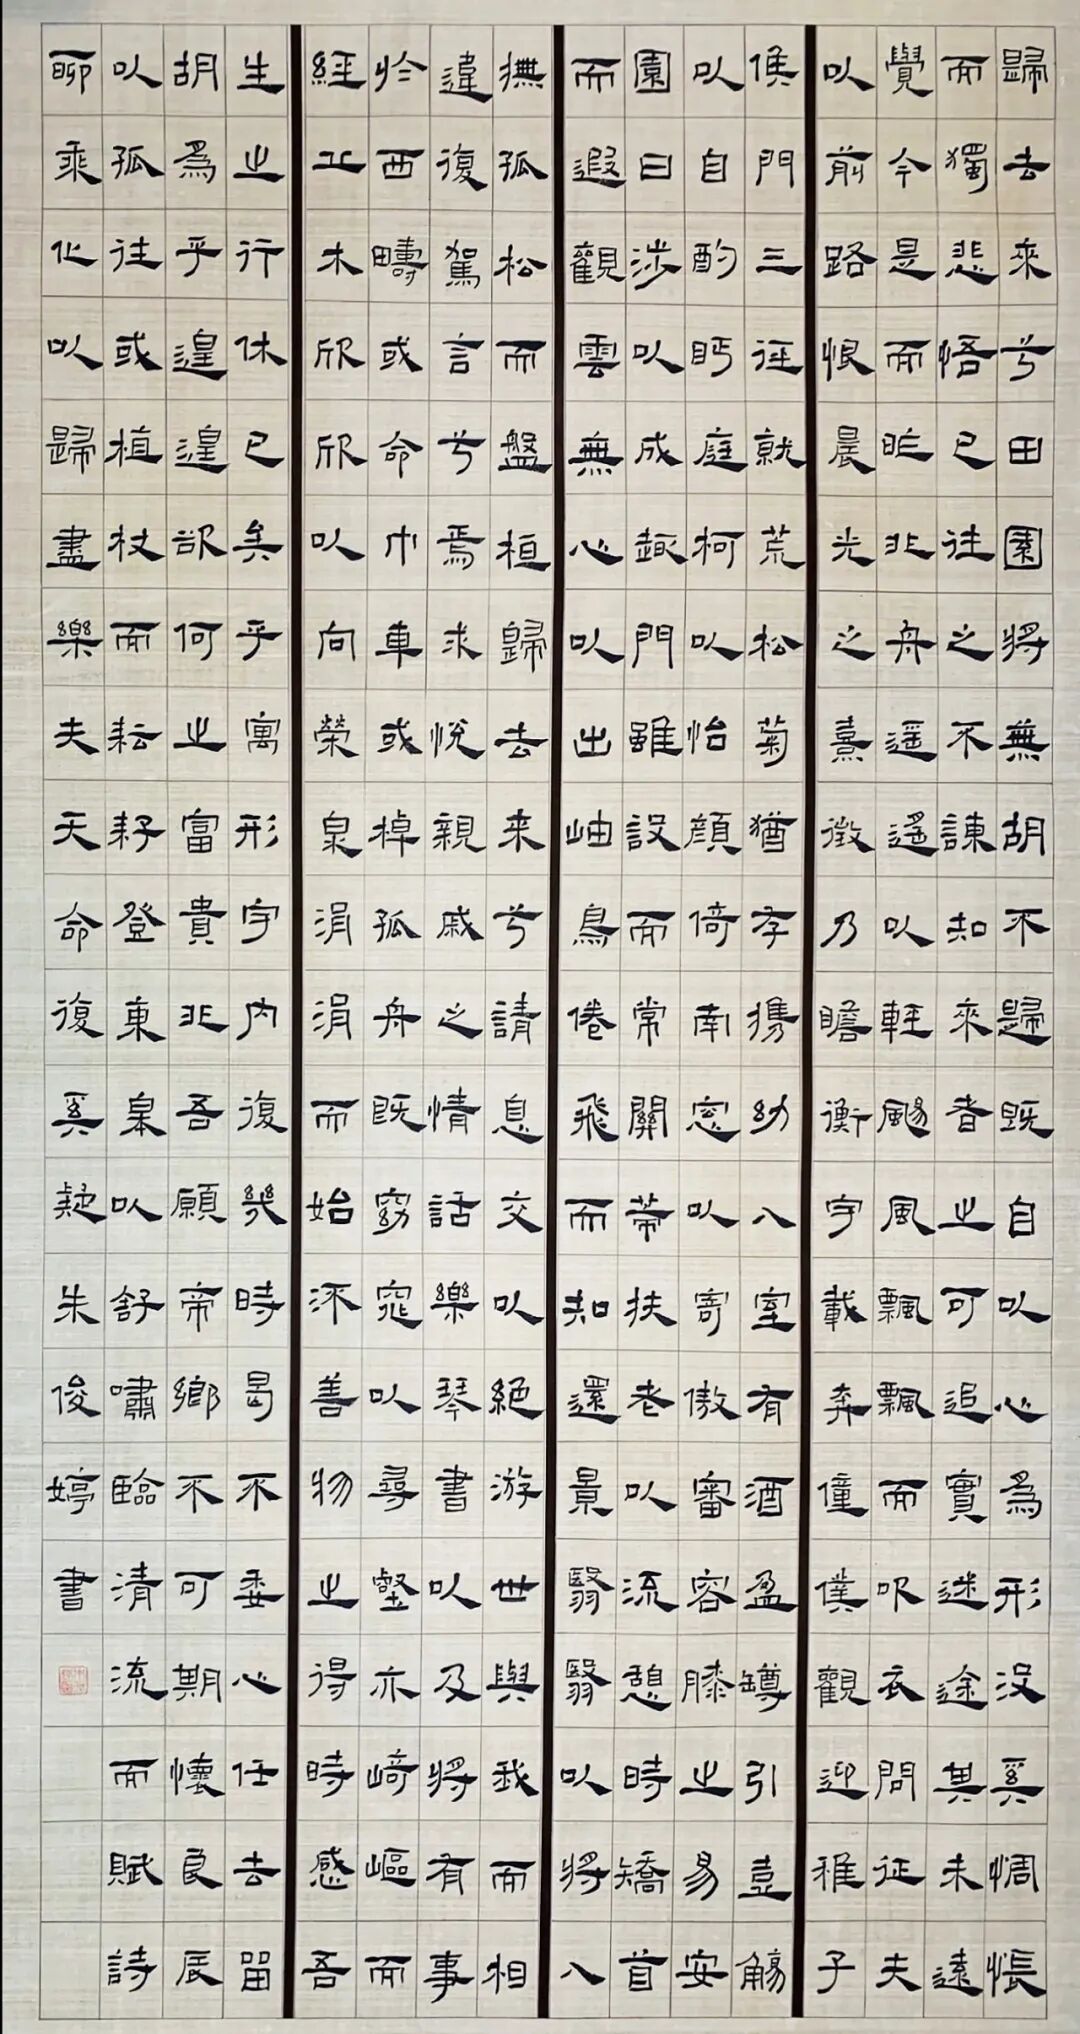 歸去來兮田園將無胡不歸既自以心為形役奚惆悵
而獨悲悟已往之不諫知來者之可追實迷途其未遠
覺今是而昨非舟遥遥以輕颺風飄飄而吹衣問征夫
以前路恨晨光之熹微乃瞻衡宇載奔僮僕觀迎稚子
侯門三徑就荒松菊猶存攜幼入室有酒盈罇引壺觴
以自酌眄庭柯以怡顏倚南窗以寄傲審容膝之易安
園日涉以成趣門雖設而常關策扶老以流憩時矯首
而遐觀雲無心以出岫鳥倦飛而知還景翳翳以將入
撫孤松而盤桓歸去来兮請息交以絕游世與我而相
違復駕言兮焉求悅親戚之情話樂琴書以及將有事
於西疇或命巾車或棹孤舟既窈窕以尋壑亦崎嶇而
經丘木欣欣以向榮泉涓涓而始流善物之得時感吾
生之行休已矣乎寓形宇内復幾時曷不委心任去留
胡為乎遑遑欲何之富貴非吾願帝鄉不可期懷良辰
以孤往或植杖而耘耔登東皋以舒嘯臨清流而賦詩
聊乘化以歸盡樂夫天命復奚疑朱俊婷書